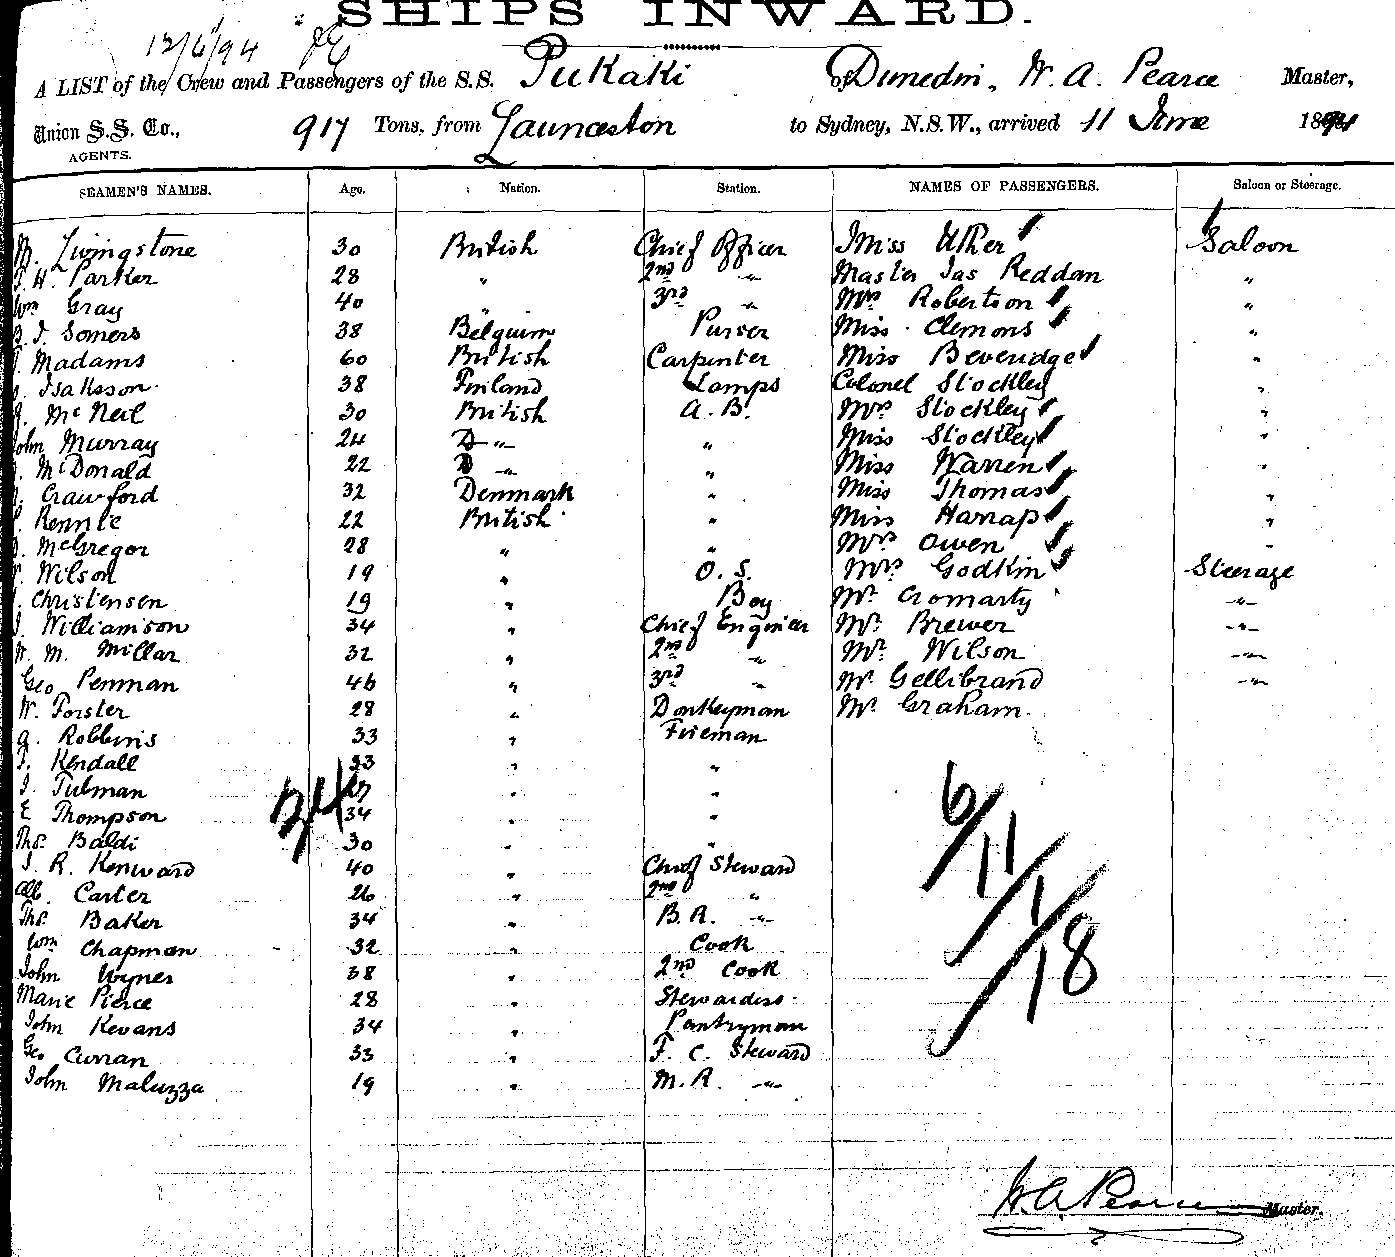 SHIPS INWARD.
12/6/94
A LIST of the Crew and Passengers of the S.S. Pukaki of Dunedin, W. A. Pearce Master,
Union S.S. Co., AGENTS. 917 Tons, from Launceston to Sydney, N.S.W., arrived 11 June 1894
SEAMEN'S NAMES. Age. Nation. Station. NAMES OF PASSENGERS. Saloon or Steerage.
Livingstone 30 British Chief Officer Miss Uther Saloon
H. Parker 28 " 2nd " Master Jas Reddan "
Wm Gray 40 " 3rd " Mrs Robertson "
J. Somers 38 Belguim Purser Miss Clemons "
Madams 60 British Carpenter Miss Beveridge "
Isaksson 38 Finland Lamps Colonel Stockley "
McNeil 30 British A.B. Mrs Stockley "
John Murray 24 D " " Miss Stockley "
McDonald 22 D " " Miss Warren "
Crawford 32 Denmark " Miss Thomas "
Rennie 22 British " Miss Harrap "
McGregor 28 " " Mrs Owen "
Wilson 19 " O.S. Mrs Godkin Steerage
Christensen 19 " Boy Mr Cromarty "
Williamson 34 " Chief Engineer Mr. Brewer "
W. M. Millar 32 " 2nd " Mr. Wilson "
Geo Penman 46 " 3rd " Mr Gellibrand "
W. Forster 28 " Donkeyman Mr. Graham
Robbins 33 " Fireman
Kendall 33 " "
Tulman " "
E Thompson 34 " "
Thos. Baldi 30 " "
J. R. Kenward 40 " Chief Steward
Alb. Carter 26 " 2nd "
Thos. Baker 34 " B.R. "
Wm Chapman 32 " Cook
John Wynes 38 " 2nd Cook
Marie Pierce 28 " Stewardess
John Kevans 34 " Pantryman
Geo Curran 33 " F. C. Steward
John Maluzza 19 " M.R. "
34
6/11/1/18
W. A. Pearce Master.